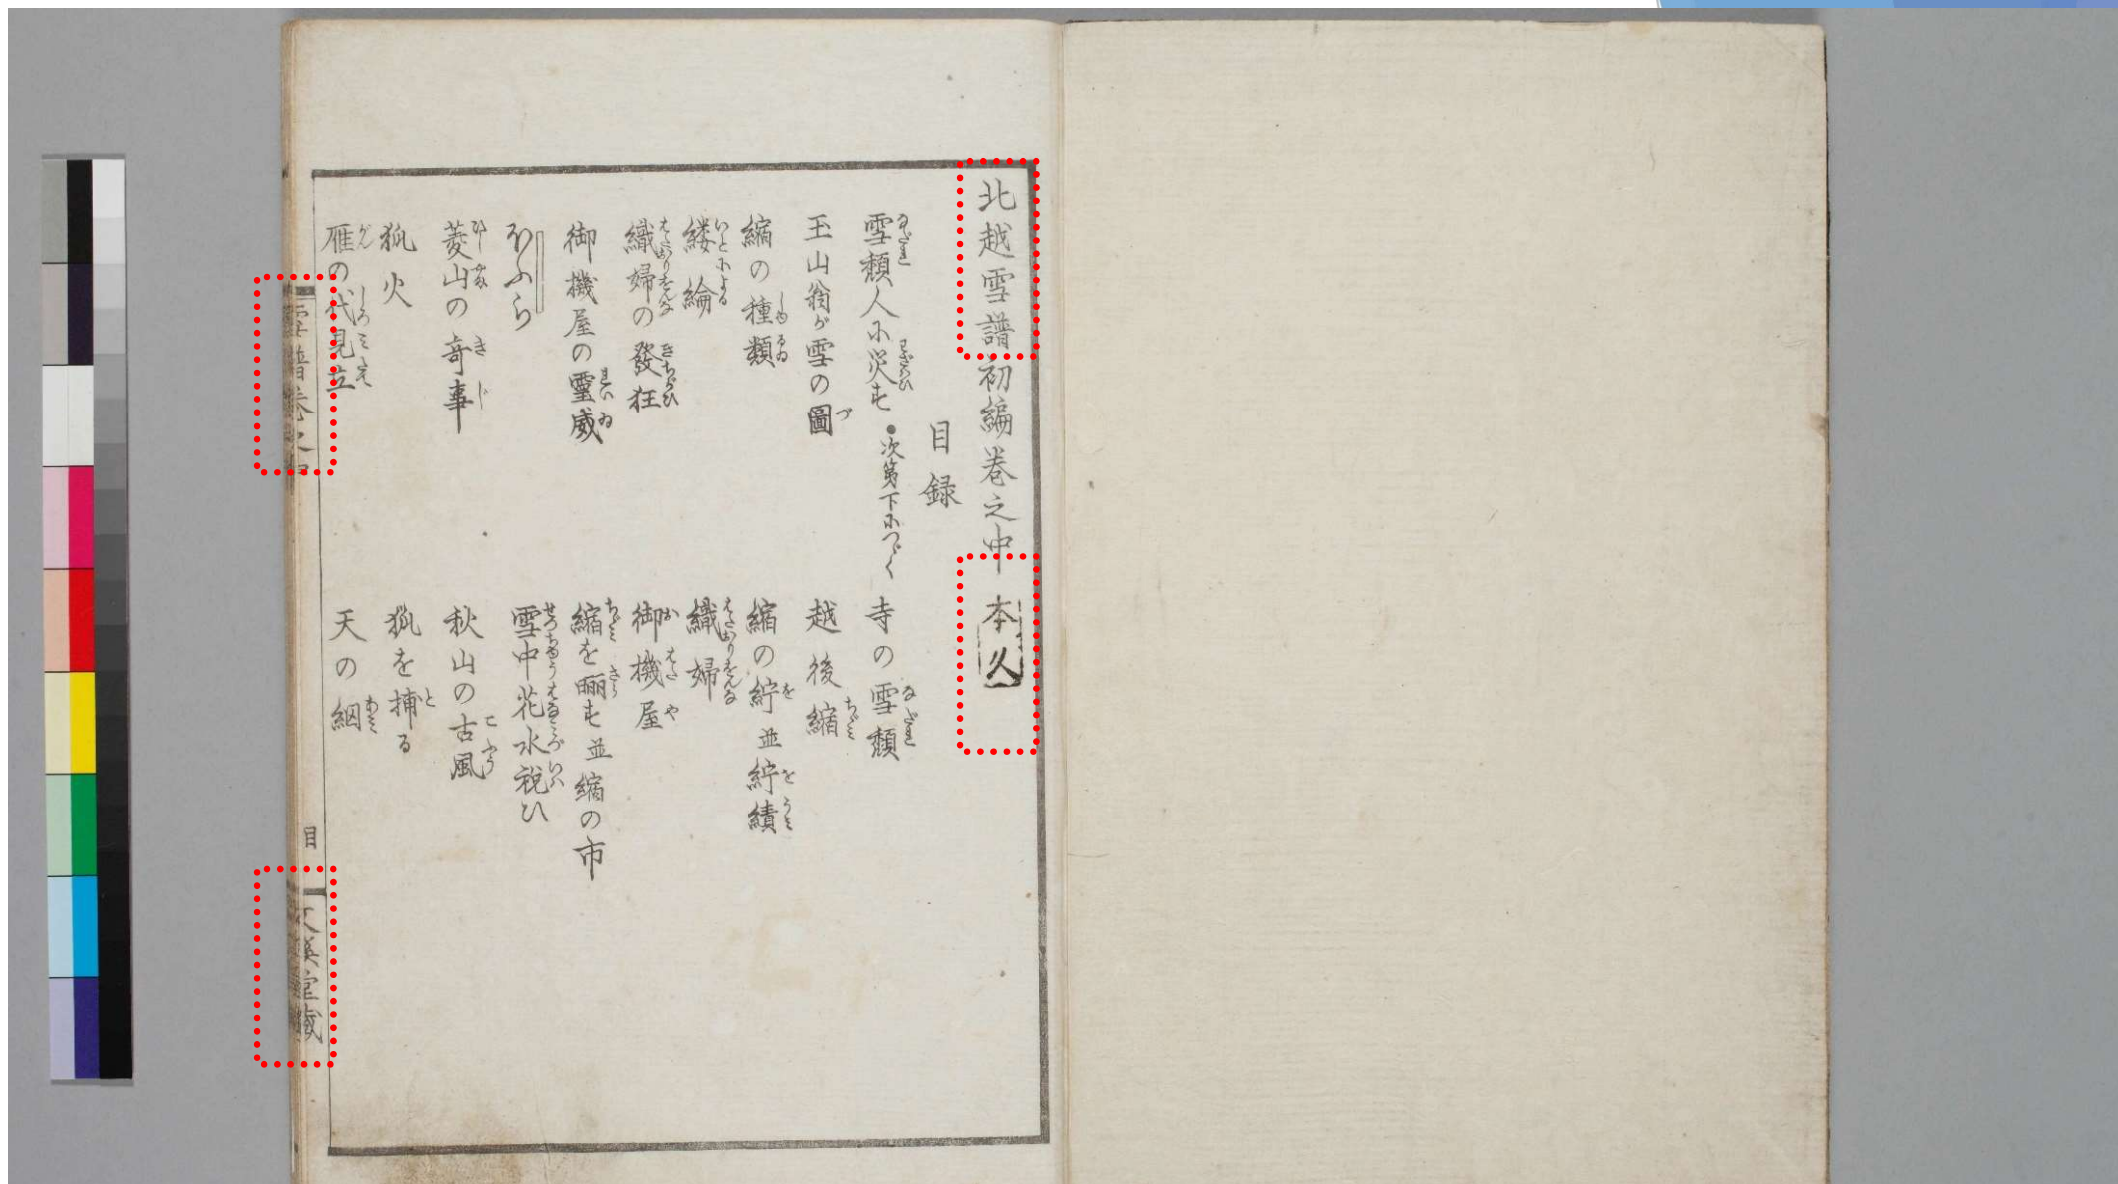 北越雪譜初編巻之中
本
久
目録
雪頽人に災す ●次第下につゞく
寺の雪頽
玉山翁が雪の圖
越後縮
縮の種類
縮の紵並紵績
縷綸
織婦
織婦の發狂
御機屋
御機屋の靈威
縮を晒す並縮の市
ほふら
雪中花水祝ひ
菱山の奇事
秋山の古風
狐火
狐を捕る
雁の代見立
天の網
雪譜巻之中
目
文溪堂藏